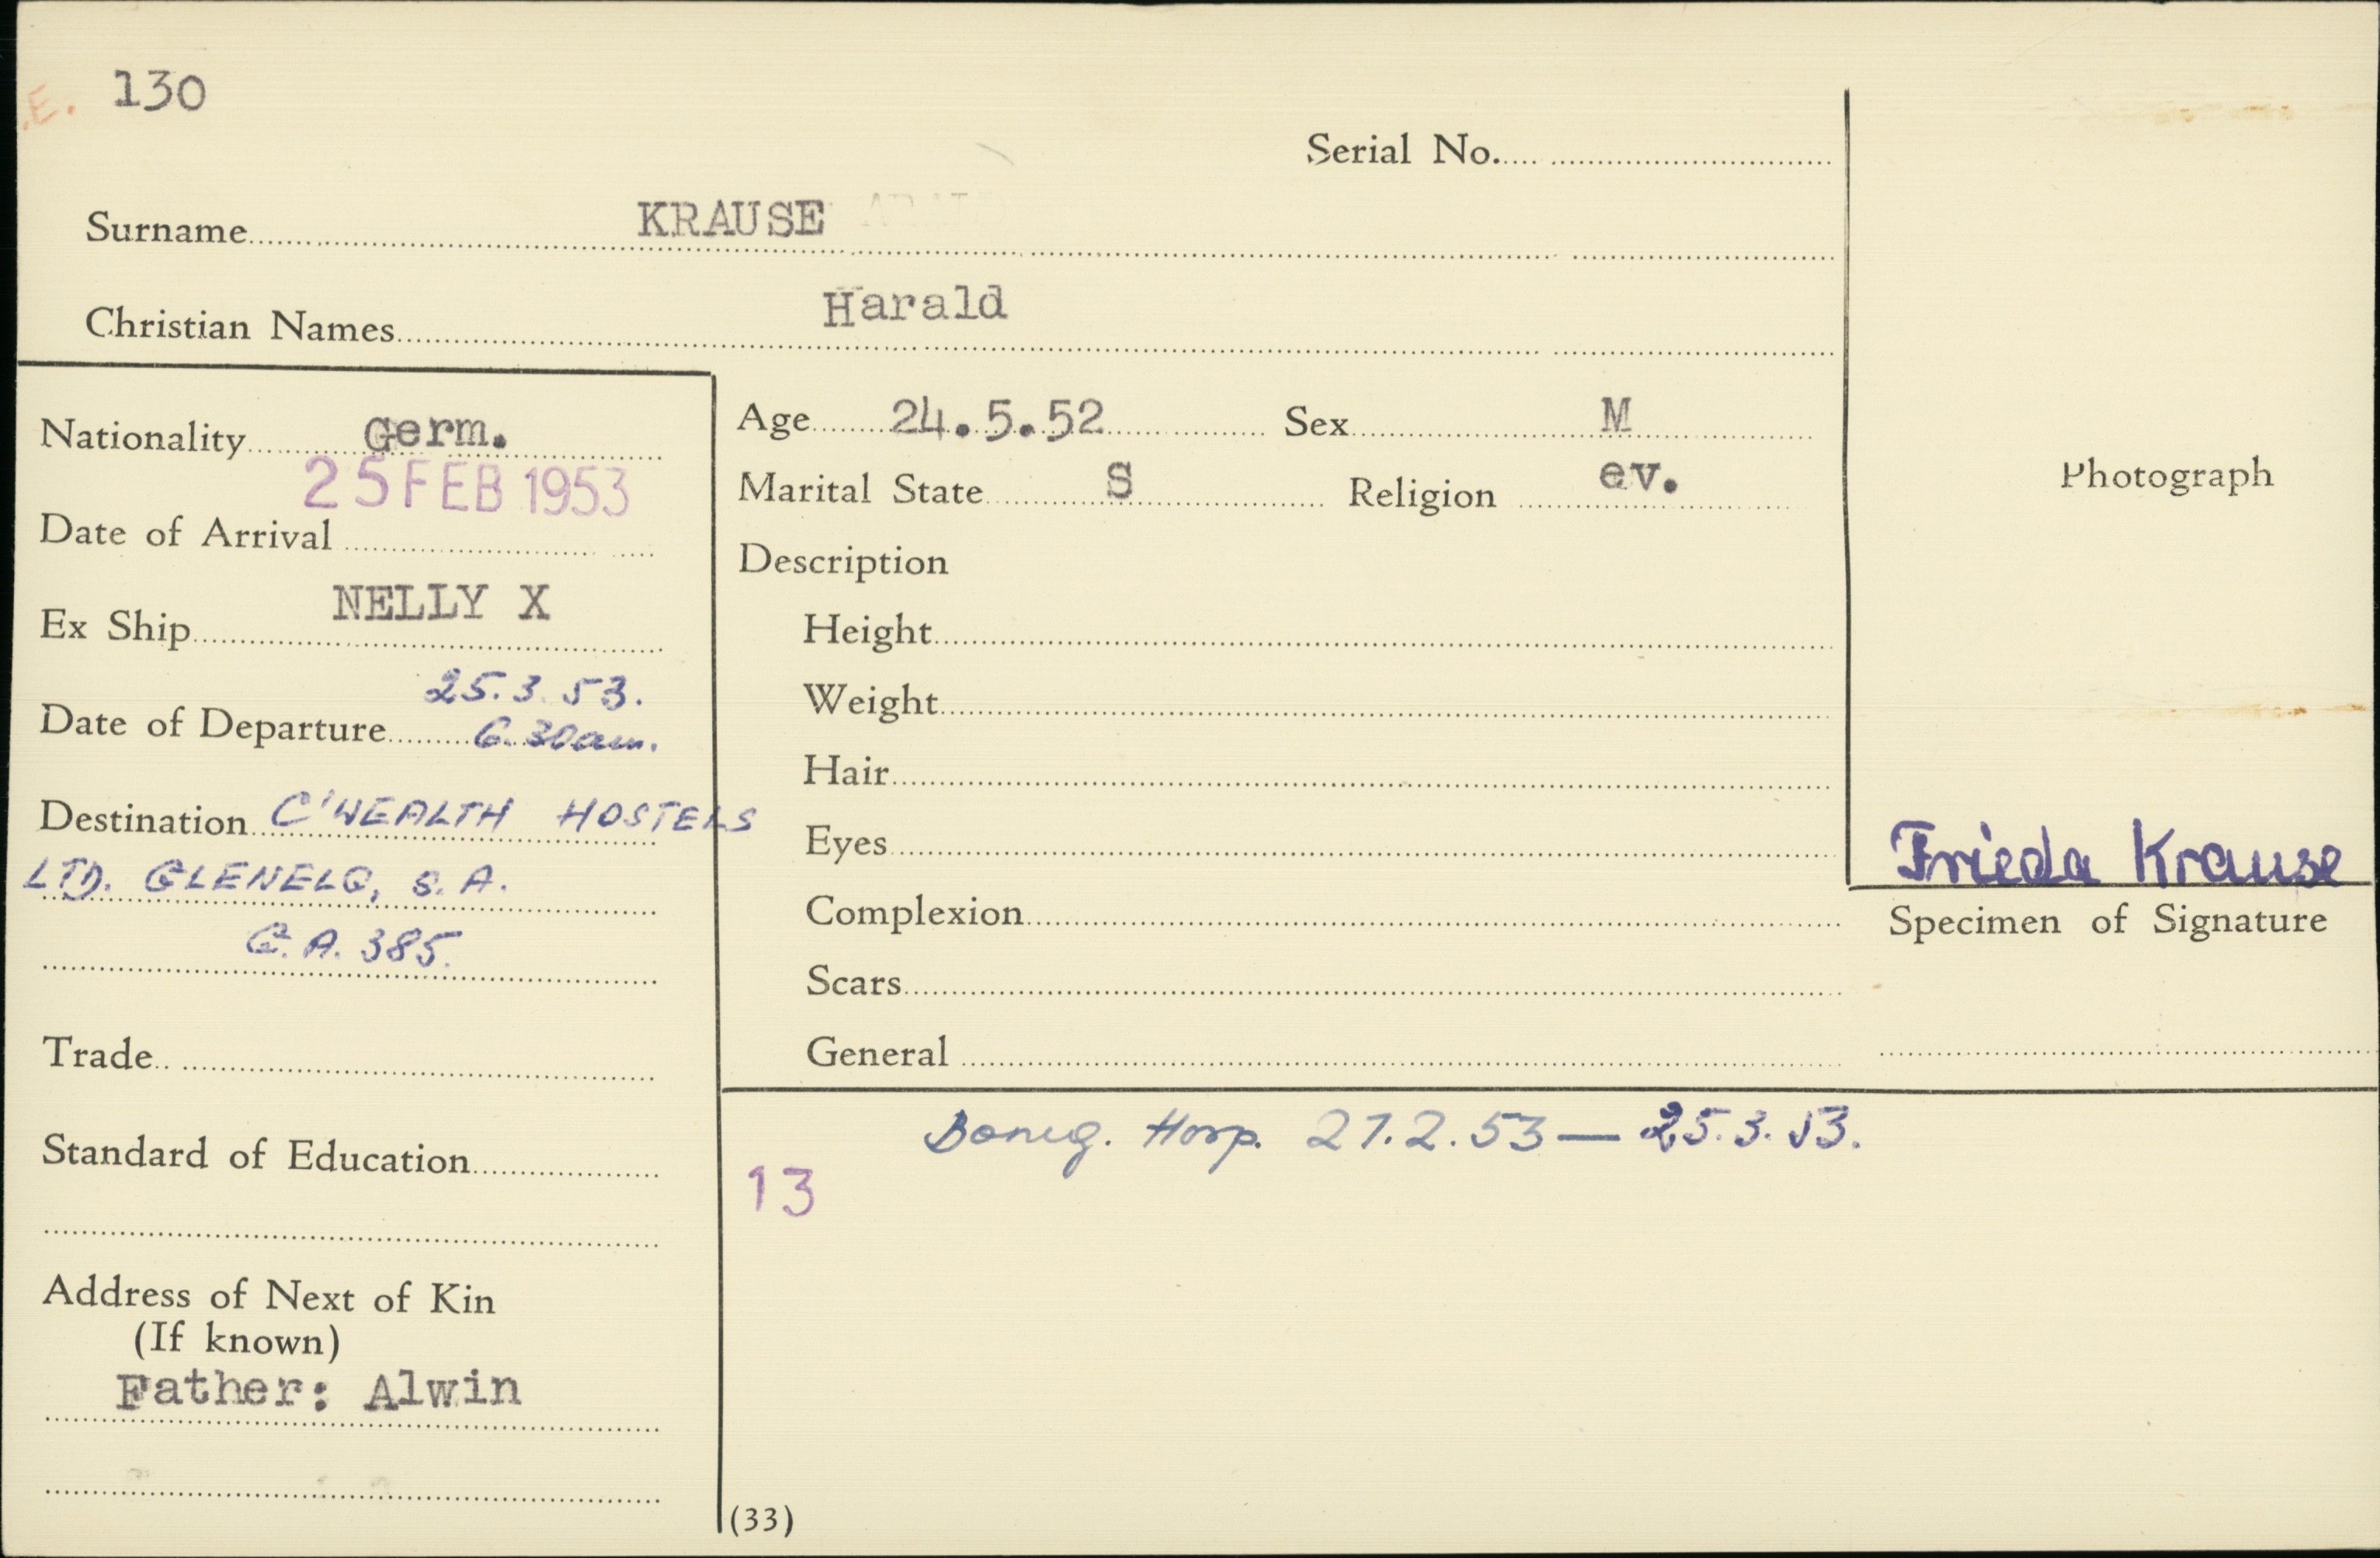 E. 130
Serial No.
Surname KRAUSE
Christian Names Harald
Nationality Germ.
25 FEB 1953
Date of Arrival
Ex Ship NELLY X
25.3.53.
Date of Departure 6.30am.
Destination C'WEALTH HOSTELS
LTD. GLENELG, S.A.
G.A. 385.
Trade
Standard of Education
Address of Next of Kin
(If known)
Father: Alwin
Age 24.5.52 Sex M
Marital State S Religion ev.
Description
Height
Weight
Hair
Eyes
Complexion
Scars
General
Photograph
Frieda Krause
Specimen of Signature
Boneg. Hosp. 27.2.53 — 25.3.53.
13
(33)